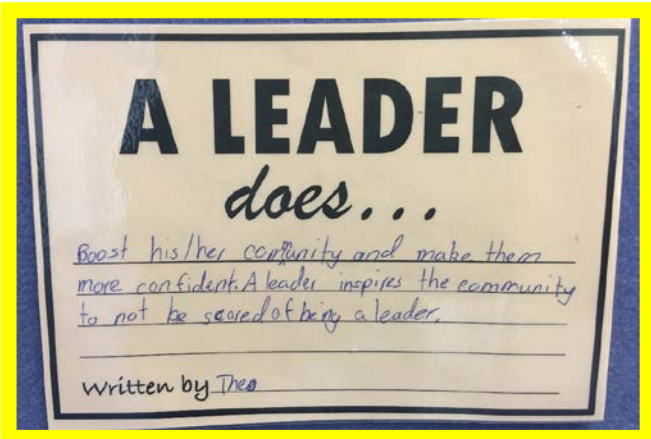 A LEADER
does...
Boost his/her community and make them
more confident. A leader inspires the community
to not be scared of being a leader.
Written by Theo